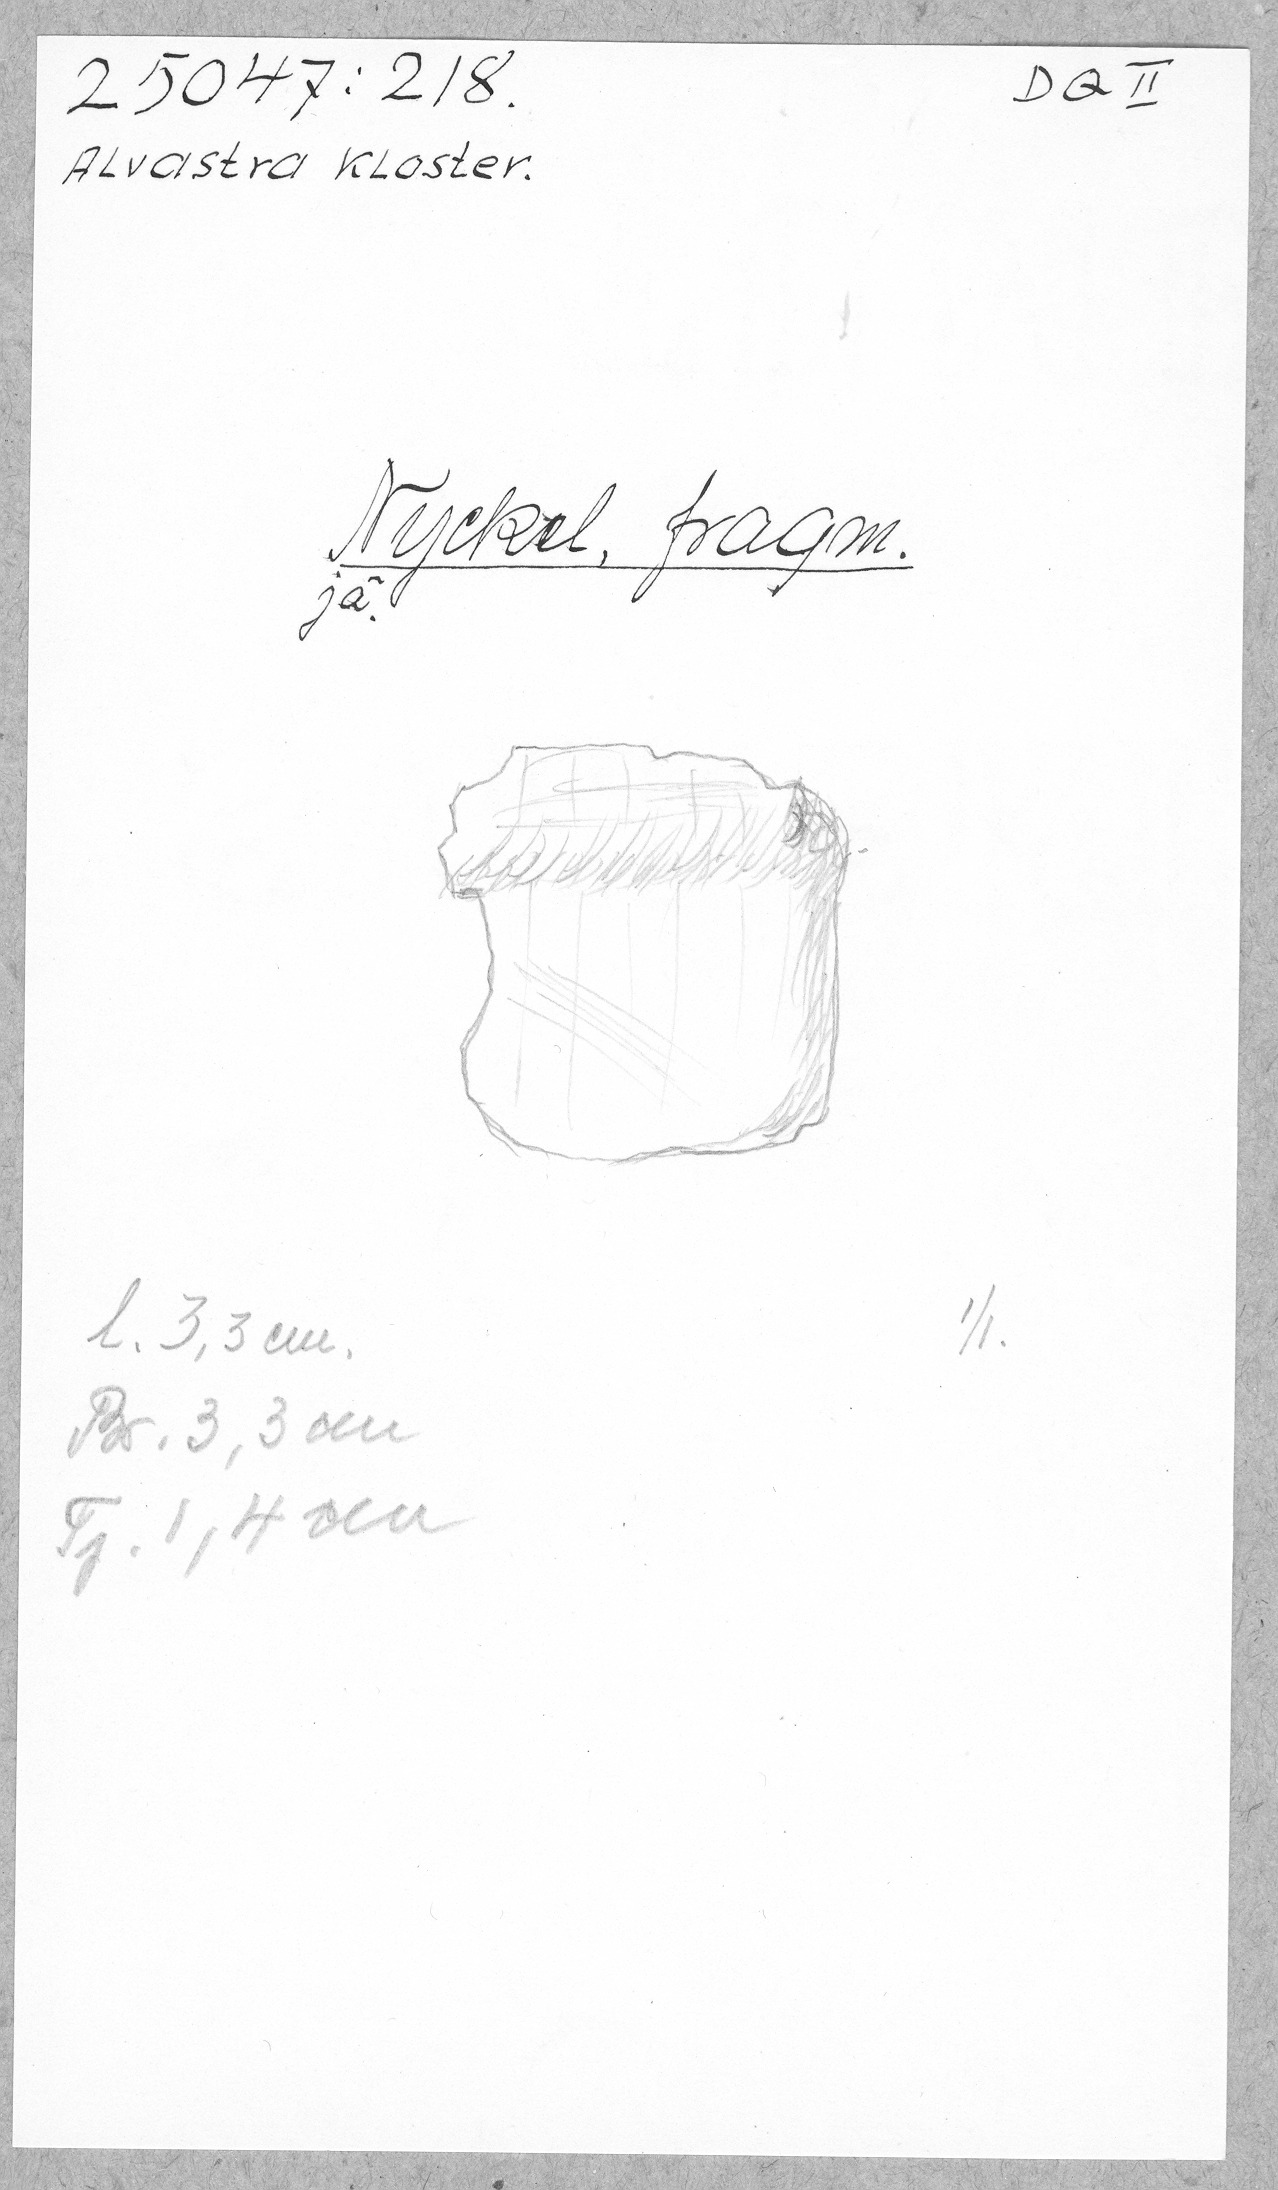 25047:218.
DQ II
Alvastra Kloster.
Nyckel, fragm.
jä.
l. 3,3 cm.
1/1.
Br. 3,3 cm
Tj. 1,4 cm